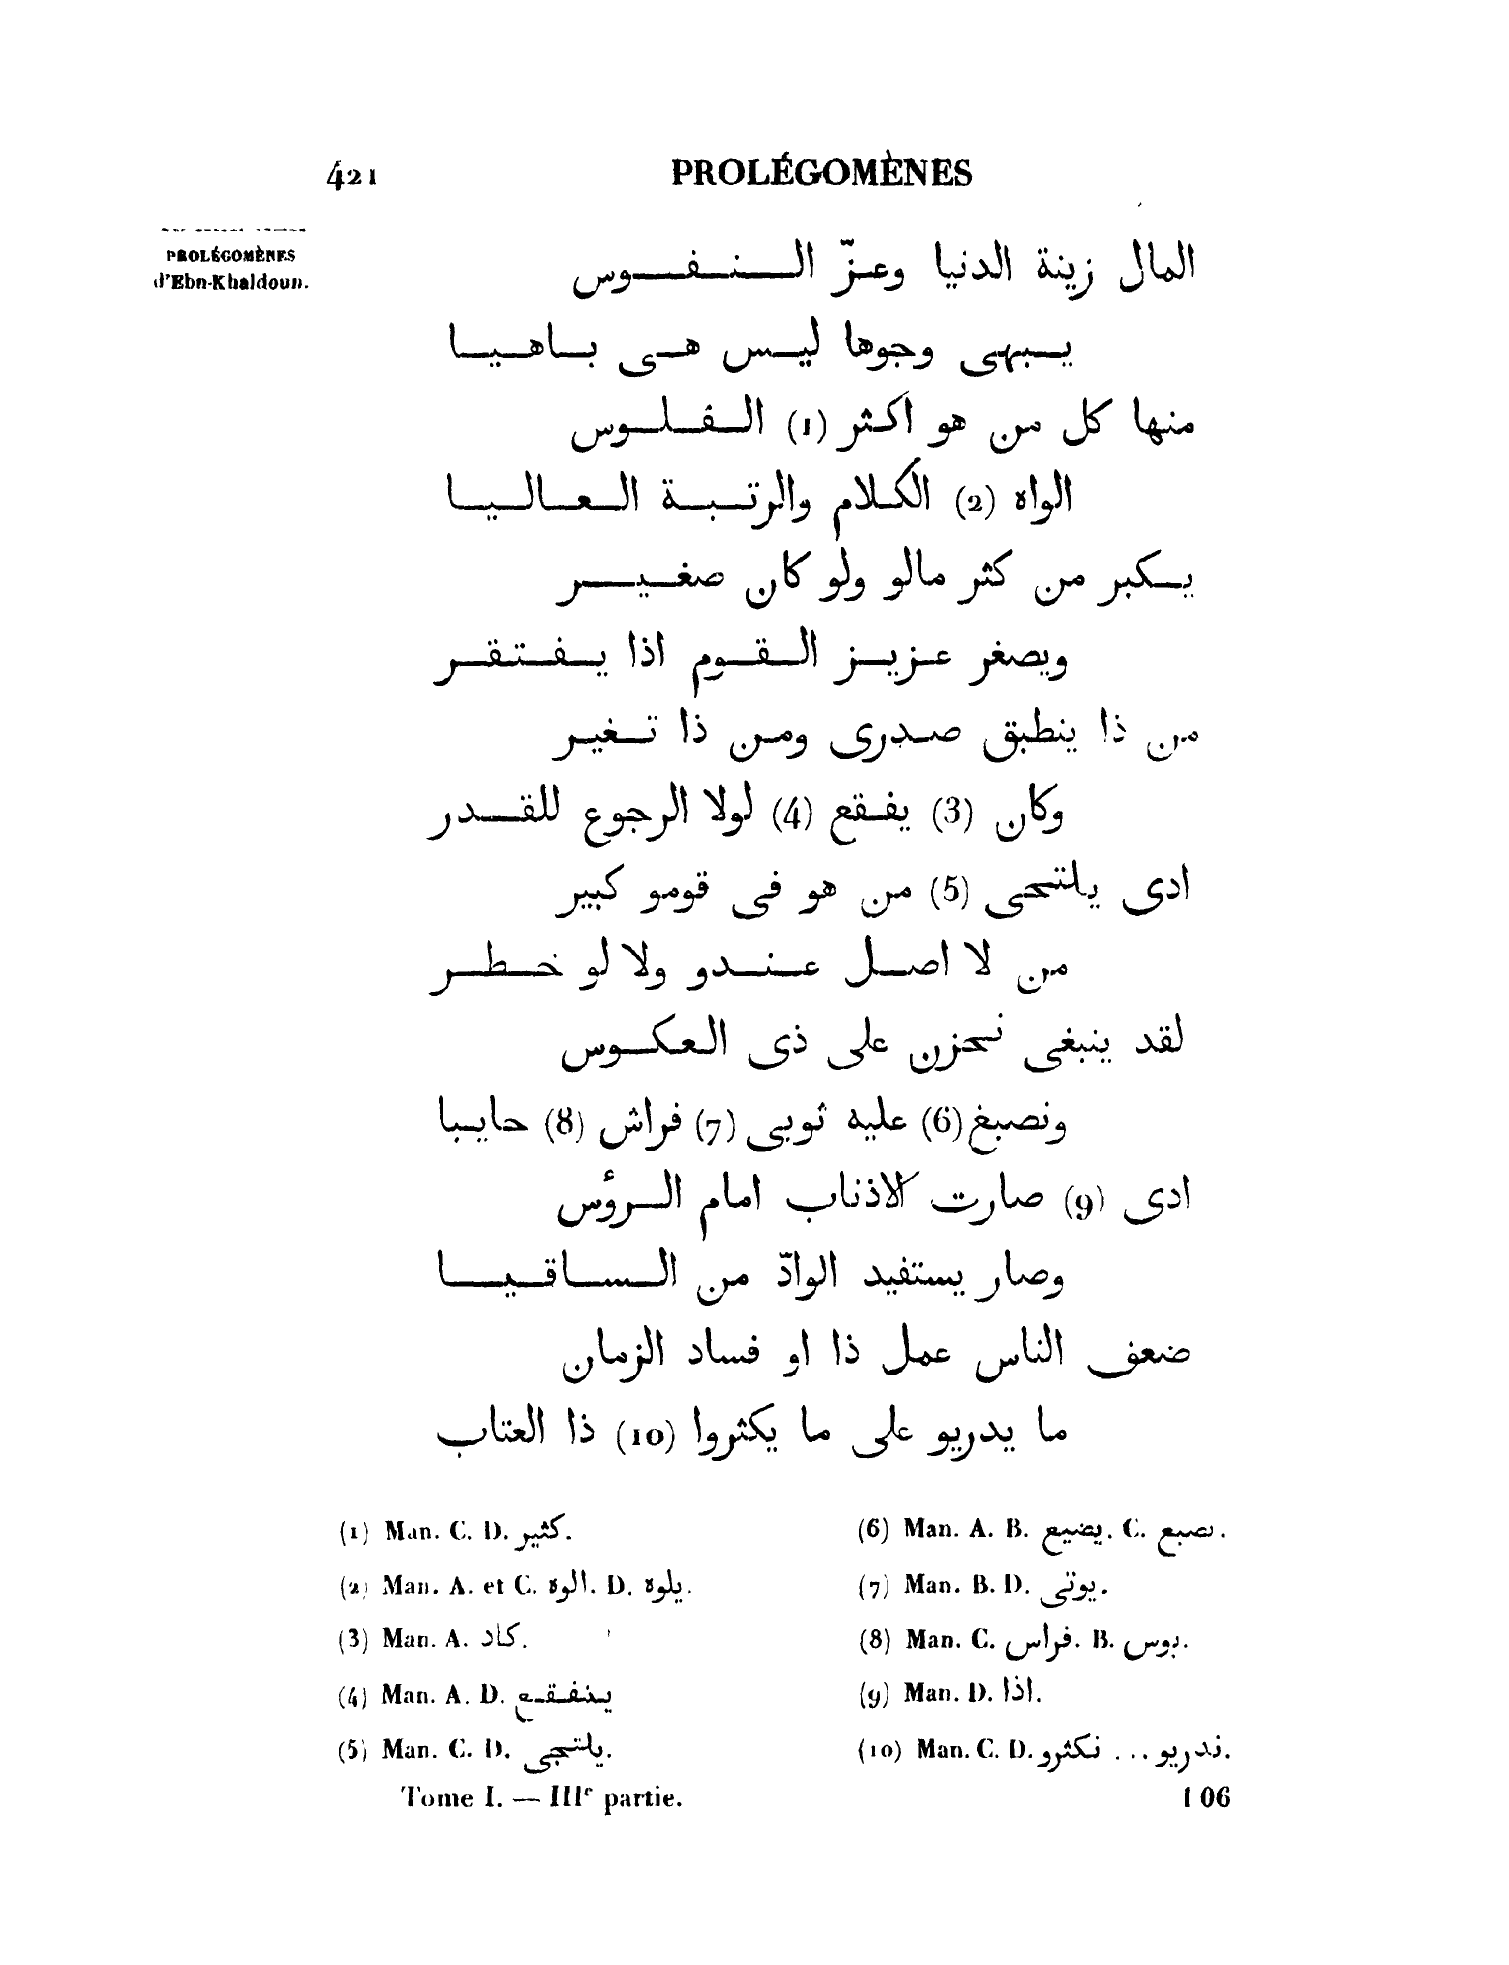 421
PROLÉGOMÈNES
PROLÉGOMÈNES
d'Ebn-Khaldoun.
المال زينة الدنيا وعزّ النفوس
يبهى وجوها ليس هى باهيا
منها كل من هو اكثر (1) الفلوس
الواه (2) الكلام والرتبة العاليا
يكبر من كثر مالو ولو كان صغير
ويصغر عزيز القوم اذا يفتقر
من ذا ينطبق صدرى ومن ذا تغير
وكان (3) يفقع (4) لولا الرجوع للقدر
ادى يلتحى (5) من هو فى قومو كبير
من لا اصل عندو ولا لو خطر
لقد ينبغى نحزن على ذى العكوس
ونصبغ (6) عليه ثوبى (7) فراش (8) حايبا
ادى (9) صارت الاذناب امام الرؤس
وصار يستفيد الوادّ من الساقيا
ضعف الناس عمل ذا او فساد الزمان
ما يدريو على ما يكثروا (10) ذا العتاب
(1) Man. C. D. كثير.
(2) Man. A. et C. الوه. D. يلوه.
(3) Man. A. كاد.
(4) Man. A. D. ينفقع
(5) Man. C. D. يلتجى.
(6) Man. A. B. يضيع. C. نصبع.
(7) Man. B. D. يوتى.
(8) Man. C. فراس. B. بوس.
(9) Man. D. اذا.
(10) Man. C. D. ندريو... نكثرو.
Tome I. — IIIe partie.
106